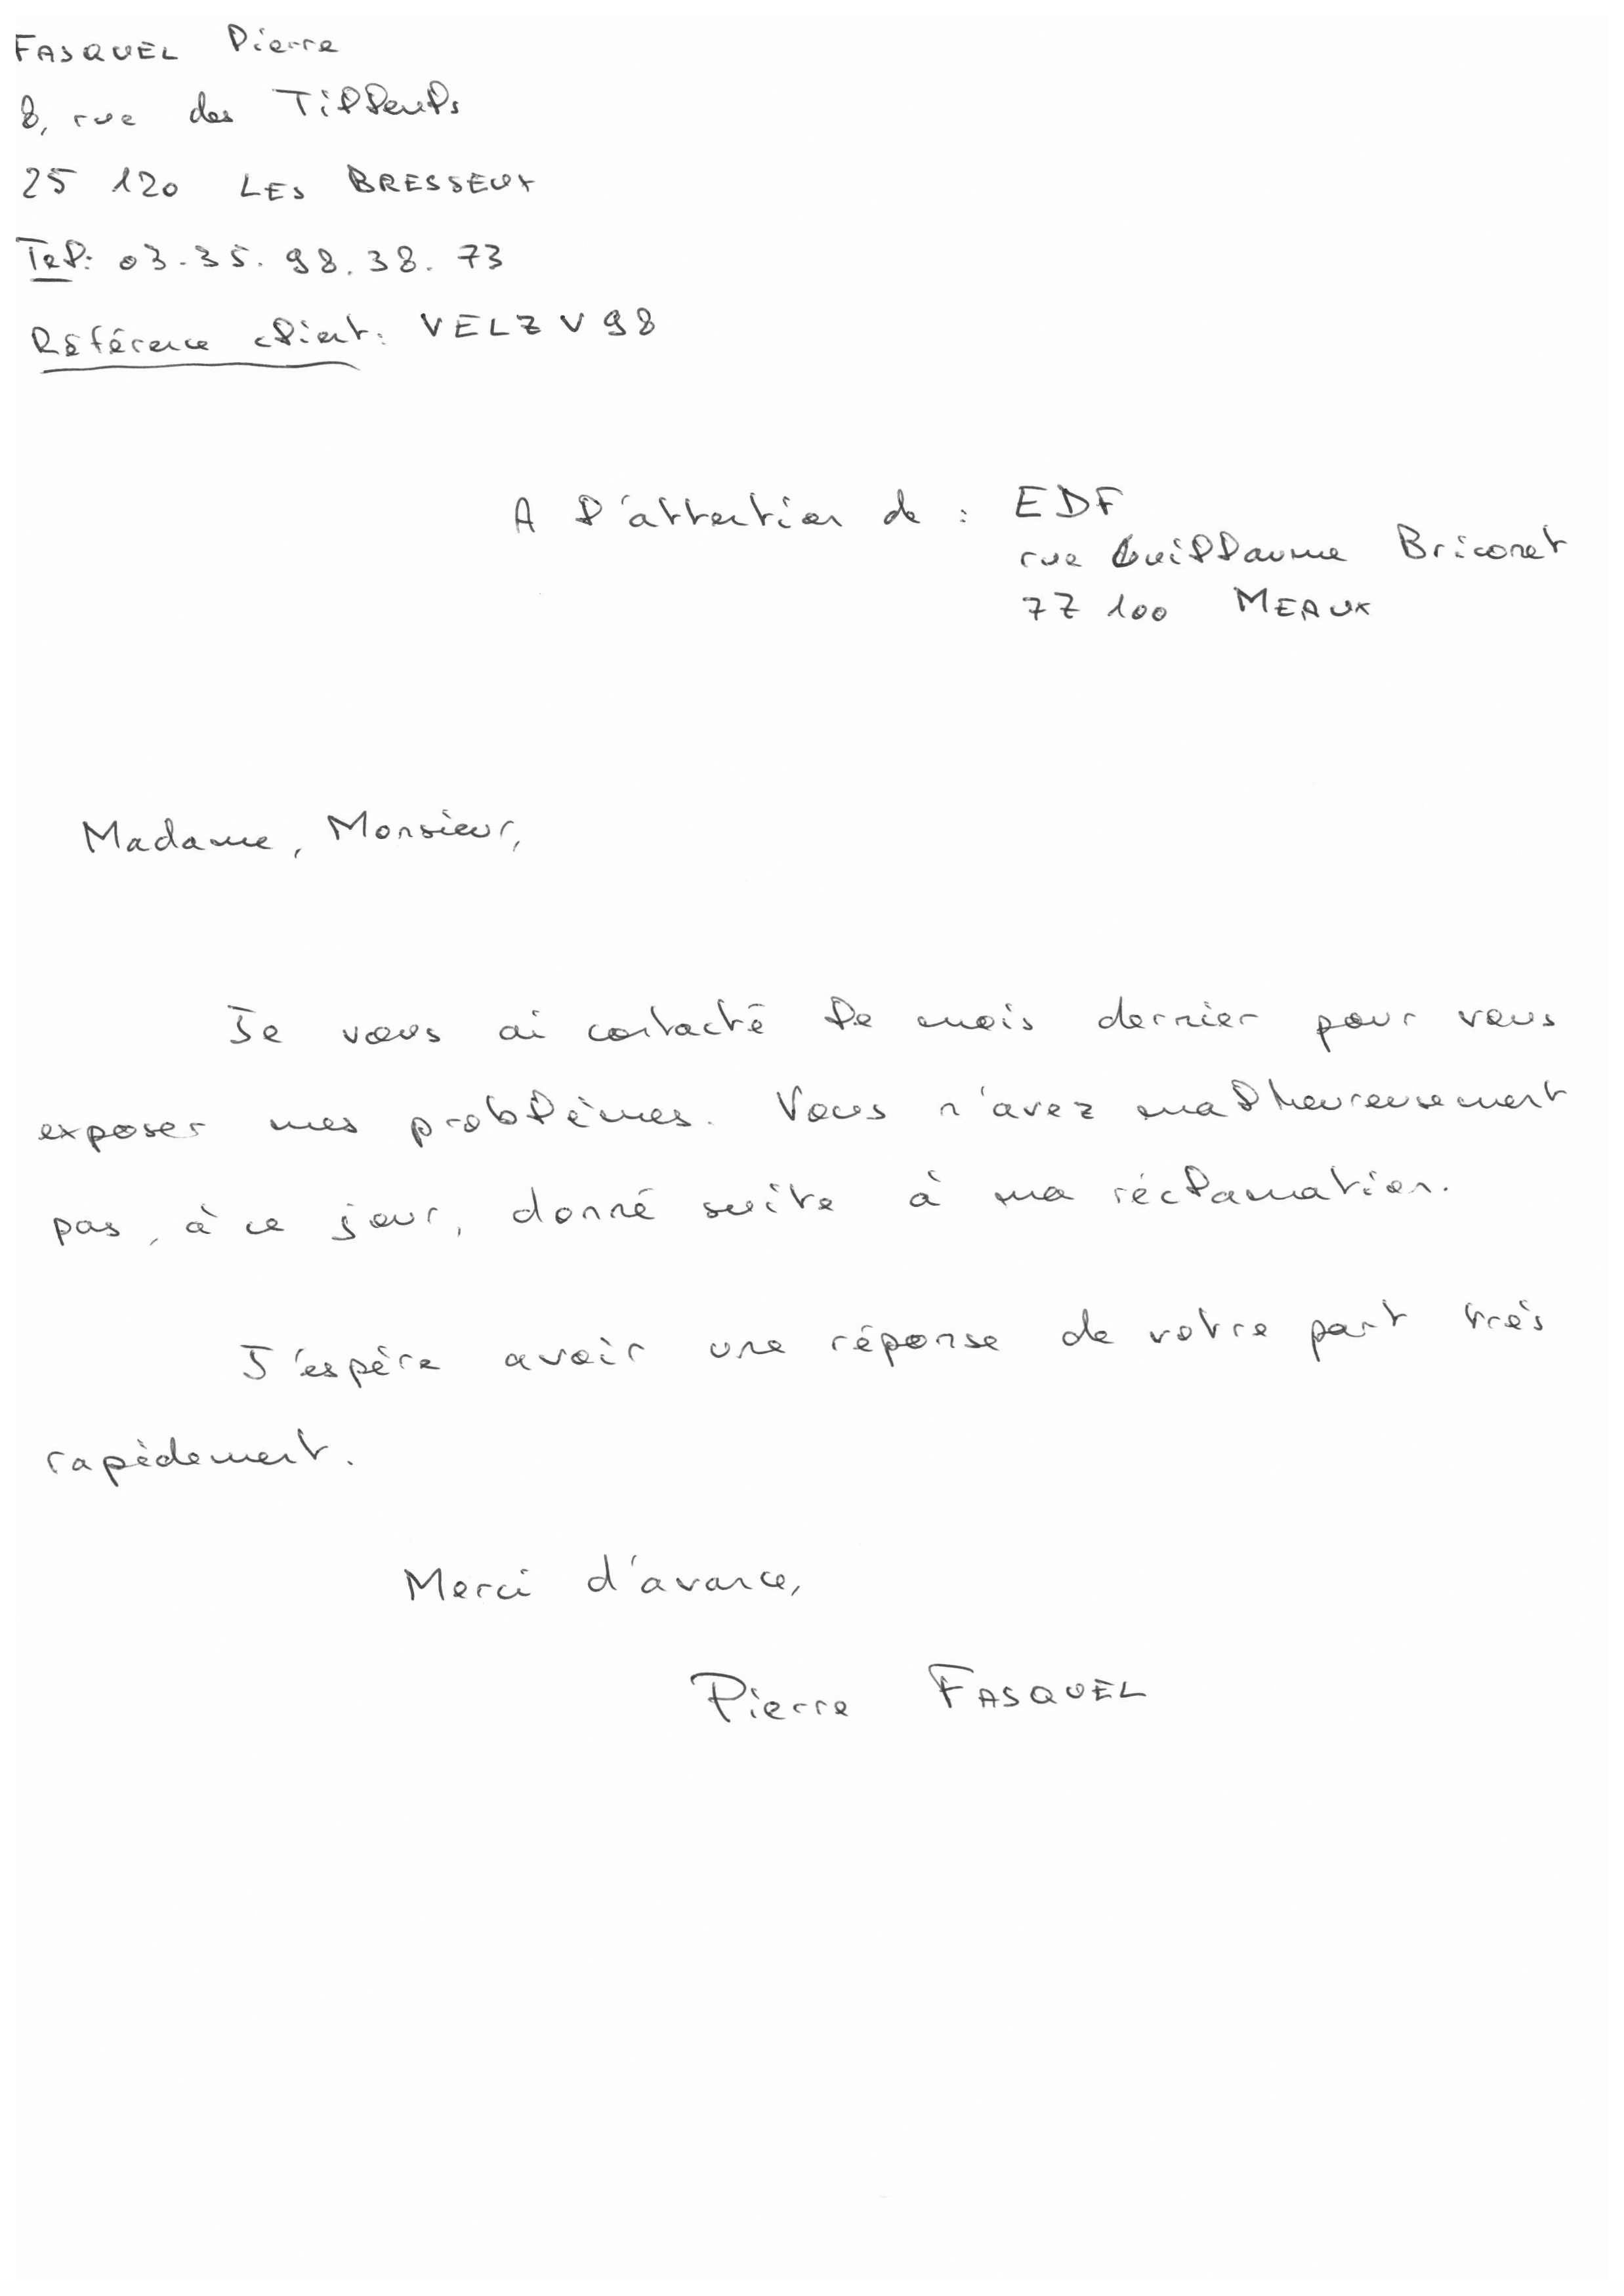 FASQUEL Pierre
8, rue des Tilleuls
25 120 LES BRESSEUX
Tel: 03.35.98.38.73
Référence client: VELZV98
A l'attention de : EDF
rue Guillaume Briconet
77 100 MEAUX
Madame, Monsieur,
Je vous ai contacté le mois dernier pour vous
exposer mes problèmes. Vous n'avez malheureusement
pas, à ce jour, donné suite à ma réclamation.
J'espère avoir une réponse de votre part très
rapidement.
Merci d'avance,
Pierre FASQUEL